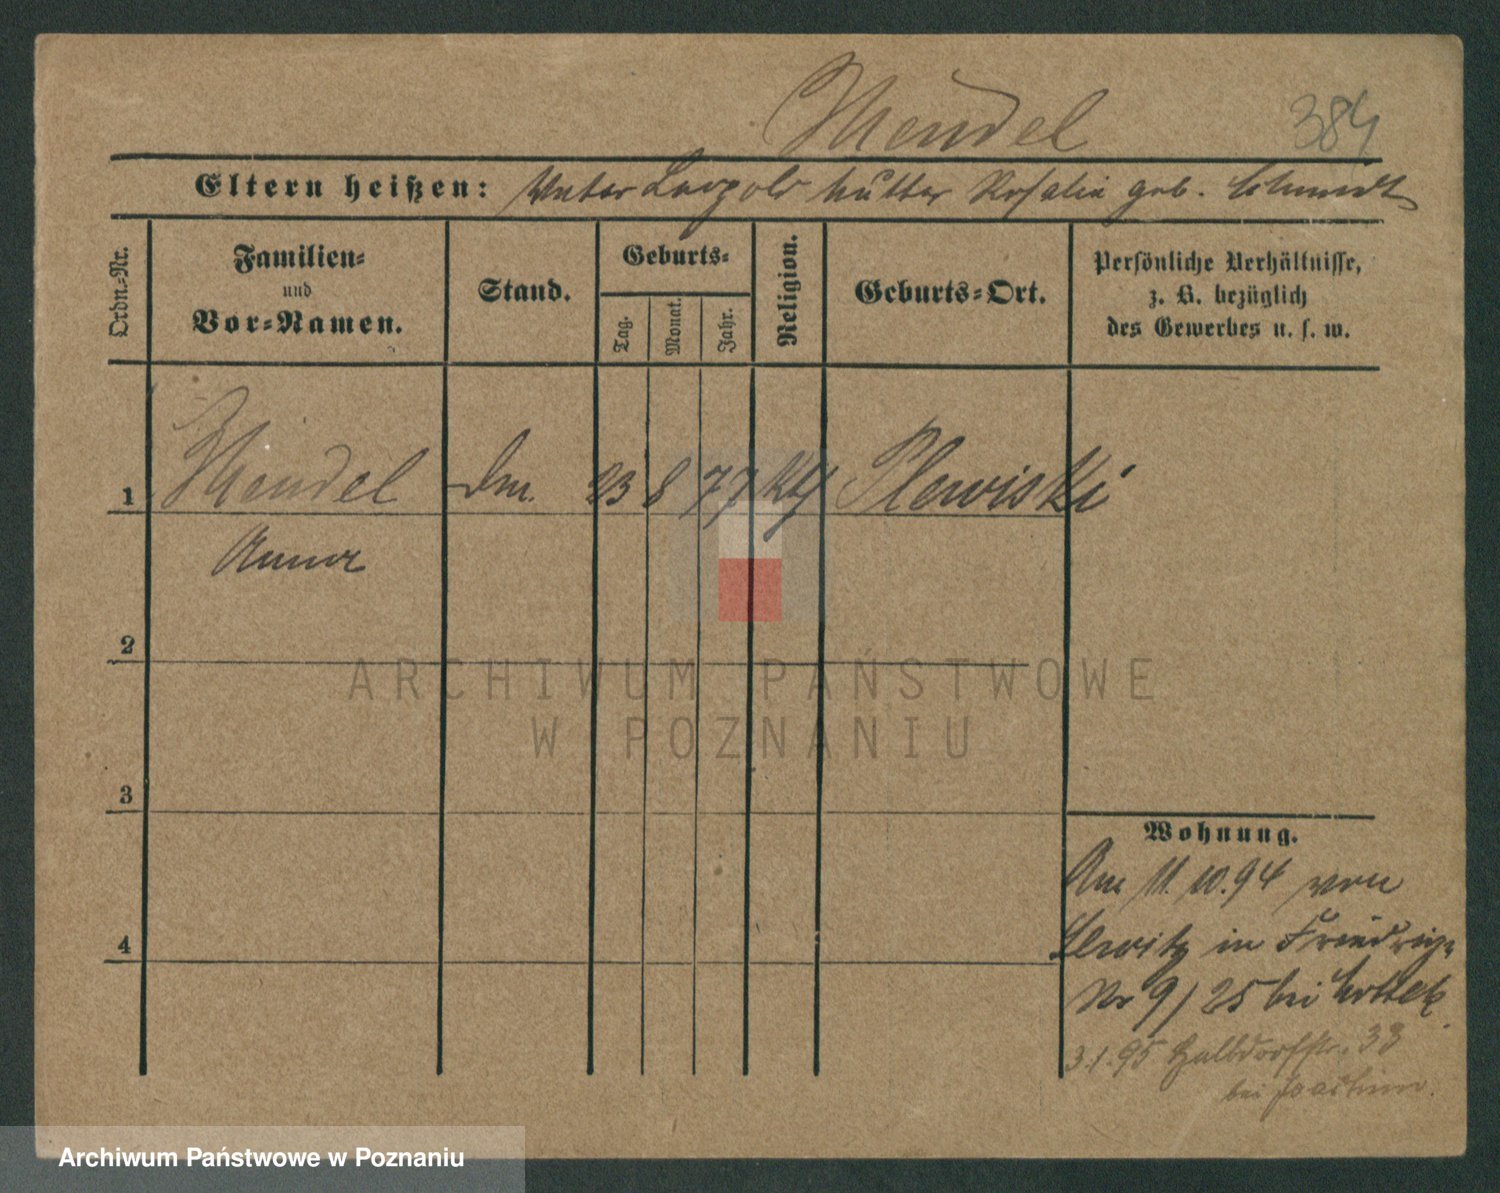 Mendel
384
Eltern heißen: Vater Leopold Mutter Rosalie geb. Schmidt
Ordn.-Nr.
Familien-
und
Vor-Namen.
Stand.
Geburts-
Tag.
Monat.
Jahr.
Religion.
Geburts-Ort.
Persönliche Verhältnisse,
z. B. bezüglich
des Gewerbes u. s. w.
1 Mendel dm. 23 8 77 kth Plewiski
Anna
2
3
4
Wohnung.
Am 11.10.94 von
in
Nr 9/25 bei
3.1.95 Halbdorfstr. 33
bei Joachim.
ARCHIWUM PAŃSTWOWE
W POZNANIU
Archiwum Państwowe w Poznaniu